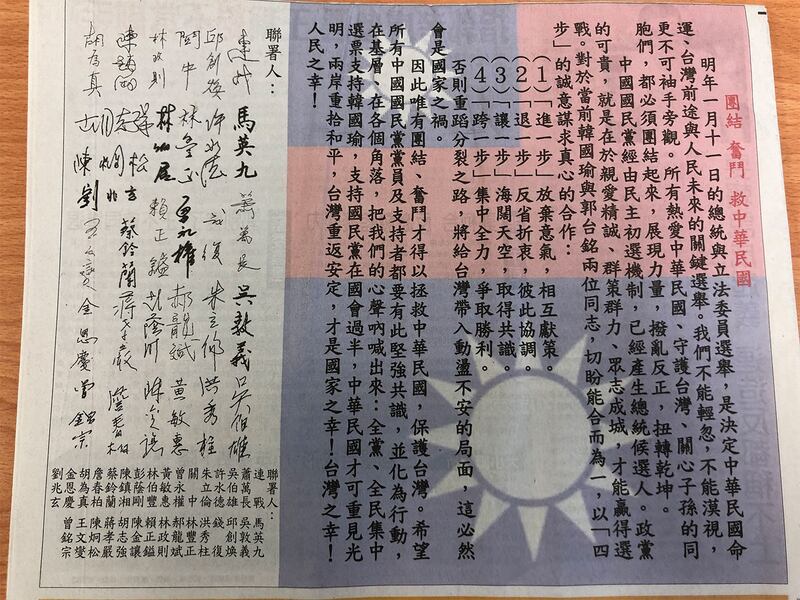 團結 奮鬥 救中華民國
明年一月十一日的總統與立法委員選舉，是決定中華民國命
運、台灣前途與人民未來的關鍵選舉。我們不能輕忽，不能漠視，
更不可袖手旁觀。所有熱愛中華民國、守護台灣、關心子孫的同
胞們，都必須團結起來，展現力量，撥亂反正，扭轉乾坤。
中國國民黨經由民主初選機制，已經產生總統候選人。政黨
的可貴，就是在於親愛精誠、群策群力、眾志成城，才能贏得選
戰。對於當前韓國瑜與郭台銘兩位同志，切盼能合而為一，以「四
步」的誠意謀求真心的合作：
(1)「進一步」放棄意氣，相互獻策。
(2)「退一步」反省折衷，彼此協調。
(3)「讓一步」海闊天空，取得共識。
(4)「跨一步」集中全力，爭取勝利。
否則重蹈分裂之路，將給台灣帶入動盪不安的局面，這必然
會是國家之禍。
因此唯有團結、奮鬥才得以拯救中華民國，保護台灣。希望
所有中國國民黨黨員及支持者都要有此堅強共識，並化為行動，
在基層、在各個角落，把我們的心聲吶喊出來：全黨、全民集中
選票支持韓國瑜，支持國民黨在國會過半，中華民國才可重見光
明，兩岸重拾和平，台灣重返安定，才是國家之幸！台灣之幸！
人民之幸！
聯署人：
連戰 馬英九 蕭萬長 吳敦義 吳伯雄
邱創煥 許水德 錢復 朱立倫 洪秀柱
關中 林豐正 曾永權 郝龍斌 黃敏惠
林政則 林伯豐 賴正鎰 彭蔭剛 陳金讓
陳鎮湘 胡志強 蔡鈴蘭 蔣孝嚴 詹春柏
胡為真 陳炯松 劉兆玄 王文燮 金恩慶 曾銘宗
聯署人：
連 戰 馬英九
蕭萬長 吳敦義
吳伯雄 邱創煥
許水德 錢 復
朱立倫 洪秀柱
關 中 林豐正
曾永權 郝龍斌
黃敏惠 林政則
林伯豐 賴正鎰
彭蔭剛 陳金讓
陳鎮湘 胡志強
蔡鈴蘭 蔣孝嚴
詹春柏 陳炯松
胡為真 王文燮
金恩慶 曾銘宗
劉兆玄